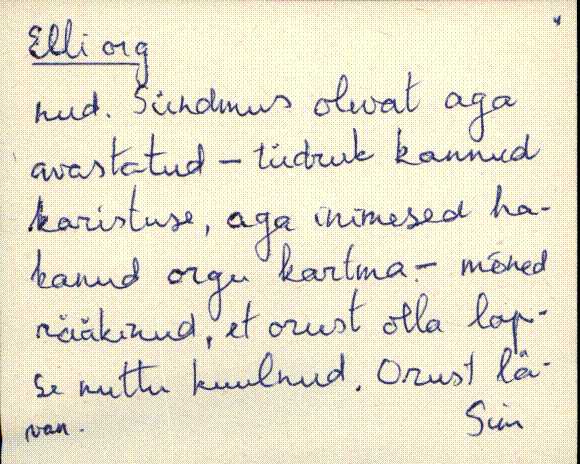 Elli org
nud. Sündmus olevat aga
avastatud – tüdruk kannud
karistuse, aga inimesed ha-
kanud orgu kartma. – mõned
rääkinud, et orust olla lap-
se nuttu kuulnud. Orust lä-
van. Sim